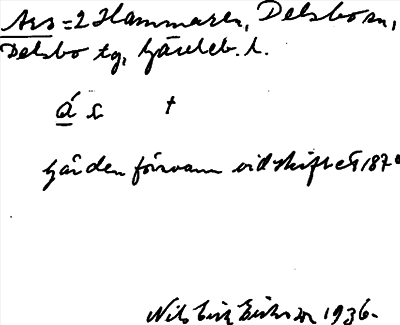 Ars = 2 Hammaren, Delsbo sn,
Delsbo tg, Gävleb. l.
á s †
Gården försvann vid skiftet 187
Nils Erik Eriksson 1936.